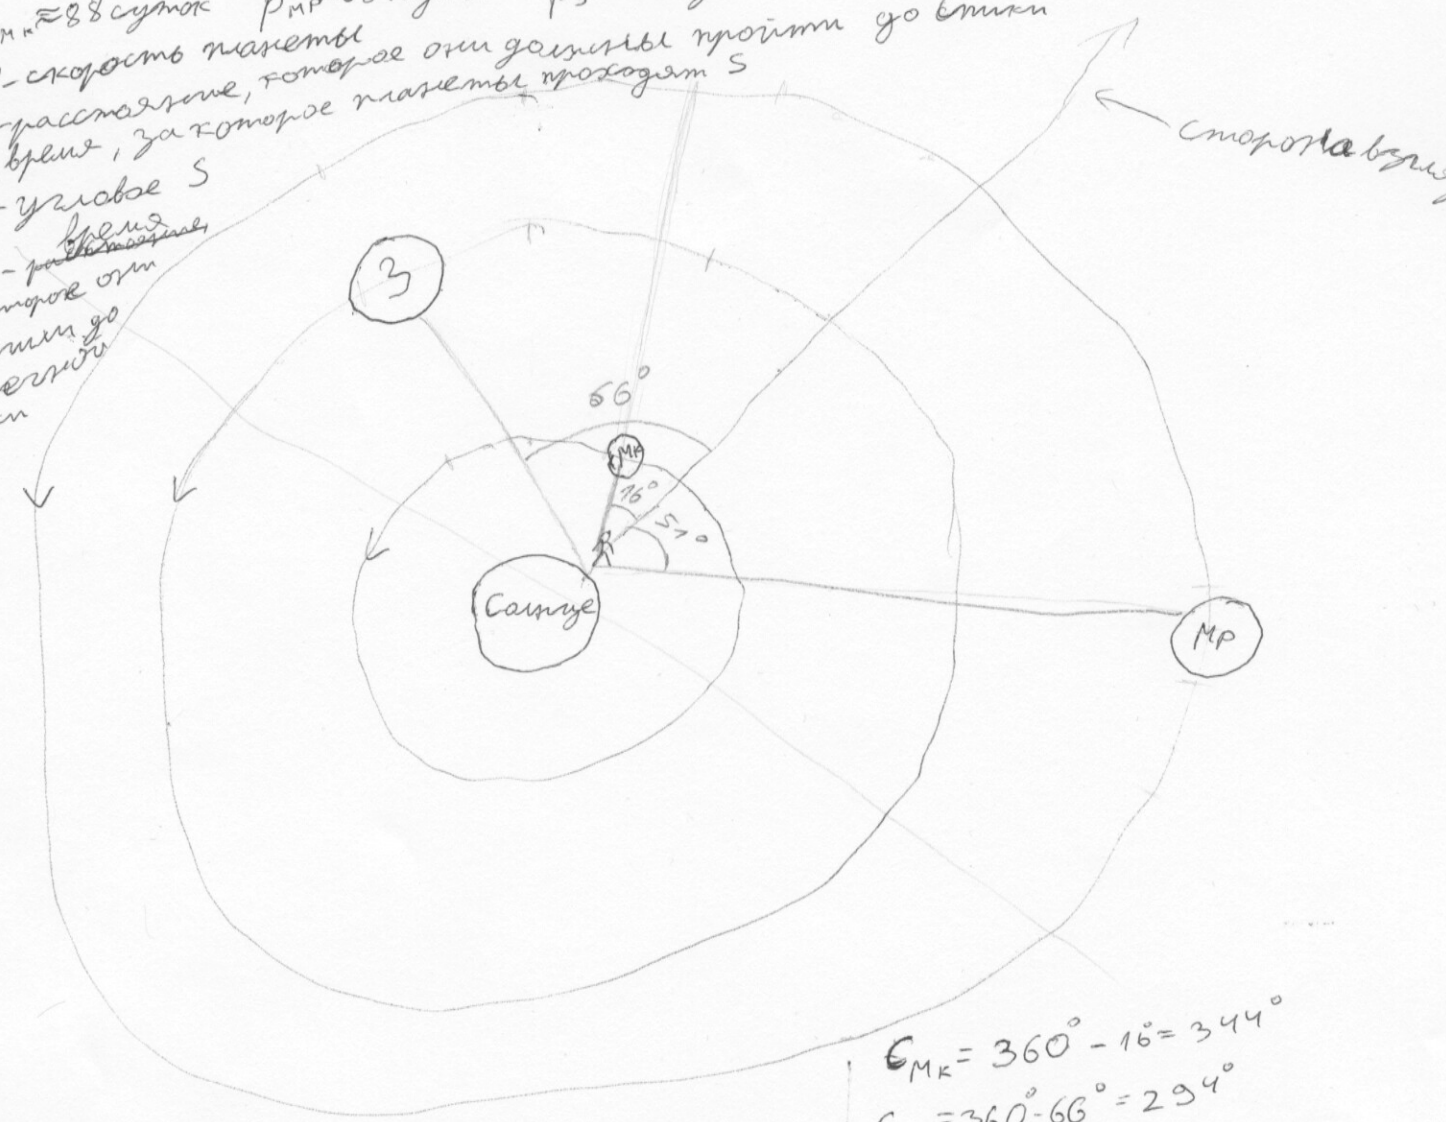 мк ≈ 88 суток  Pмр
- скорость планеты
- расстояние, которое они должны пройти до стыки
время, за которое планеты проходят S
- угловое S
время
- расстояние,
торое они
шли до
ечной
З
66°
МК
16°
51°
Солнце
МР
сторона взгля
Cмк = 360° - 16° = 344°
= 360° - 66° = 294°